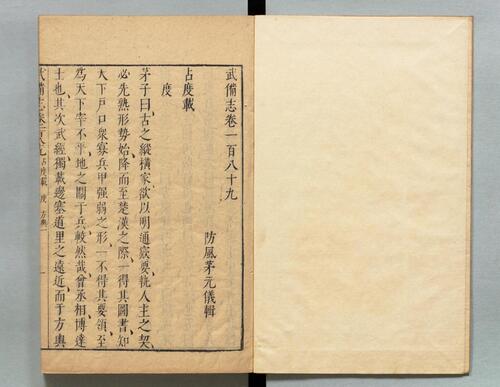 武備志卷一百八十九
防風茅元儀輯
占度載
度
茅子曰古之縱橫家欲以明通竅要執人主之契
必先熟形勢始降而至楚漢之際一得其圖書知
天下戶口衆寡兵甲强弱之形一不得其要領至
為天下宰不平地之關于兵較然哉曾承相博達
士也其次武經獨載邊塞道里之遠近而于方輿
武備志卷一百八十九 占度載 度 方輿一